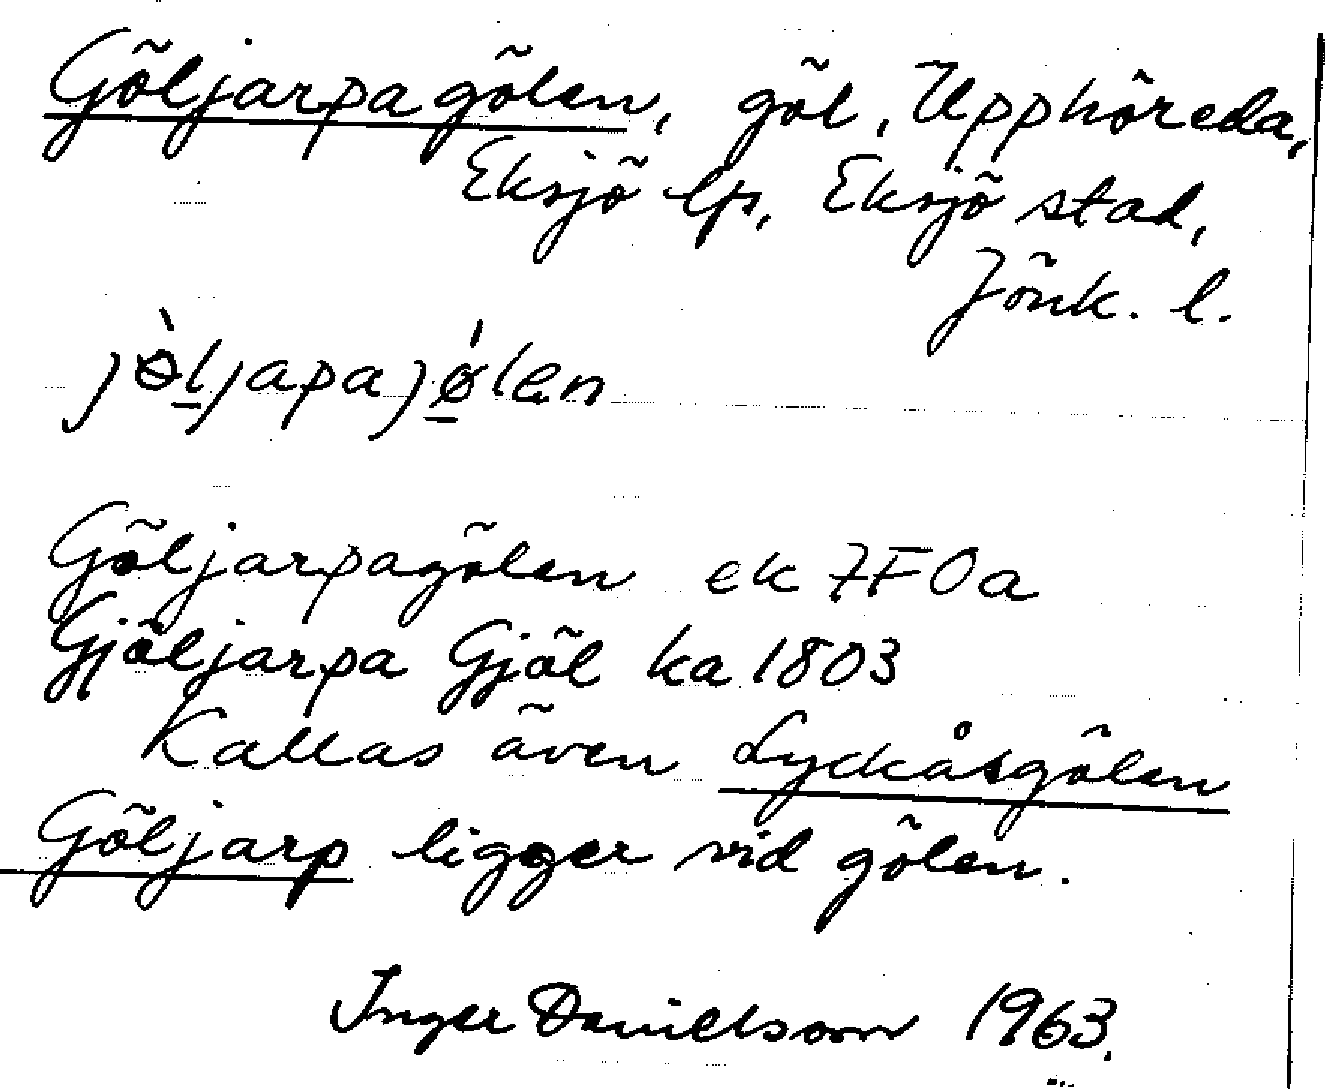 Göljarpagölen, göl, Upphöreda,
Eksjö lfs, Eksjö stad,
Jönk. l.
jɵ̀ljapajǿlen
Göljarpagölen ek 7F0a
Gjöljarpa Gjöl ka 1803
Kallas även Lyckåsgölen
Göljarp ligger vid gölen.
Inger Danielsson 1963.